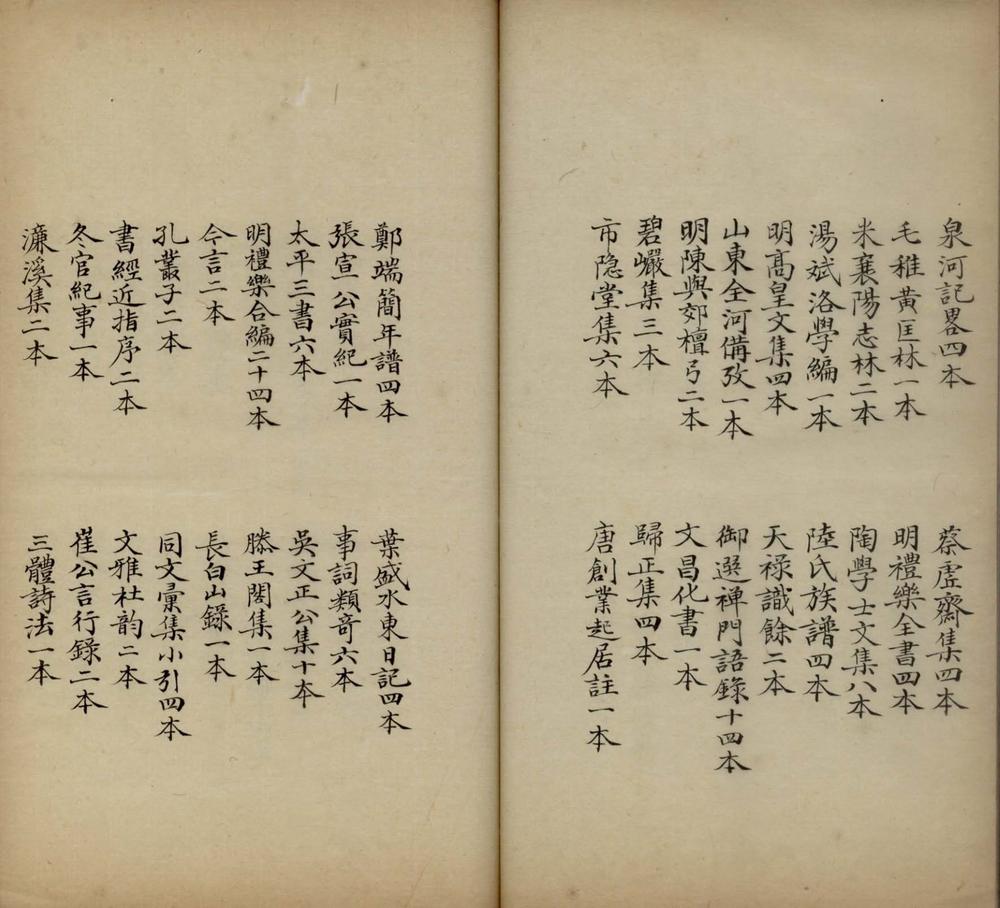 泉河記畧四本
蔡虛齋集四本
毛稚黃匡林一本
明禮樂全書四本
米襄陽志林二本
陶學士文集八本
湯斌洛學編一本
陸氏族譜四本
明髙皇文集四本
天祿識餘二本
山東全河備攷一本
御選禅門語錄十四本
明陳與郊檀弓二本
文昌化書一本
碧巗集三本
歸正集四本
市隐堂集六本
唐創業起居註一本
鄭端簡年譜四本
葉盛水東日記四本
張宣公實紀一本
事詞類竒六本
太平三書六本
吳文正公集十本
明禮樂合編二十四本
滕王閣集一本
今言二本
長白山錄一本
孔叢子二本
同文彙集小引四本
書經近指序二本
文雅杜韵二本
冬官紀事一本
崔公言行錄二本
濂溪集二本
三體詩法一本